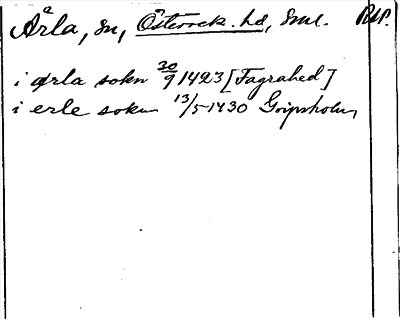 Årla, sn, Österrek. hd, Sml. RSP.
i ærla sokn 30/9 1423 [Fagrahed]
i erle sokn 13/5 1430 Gripsholm